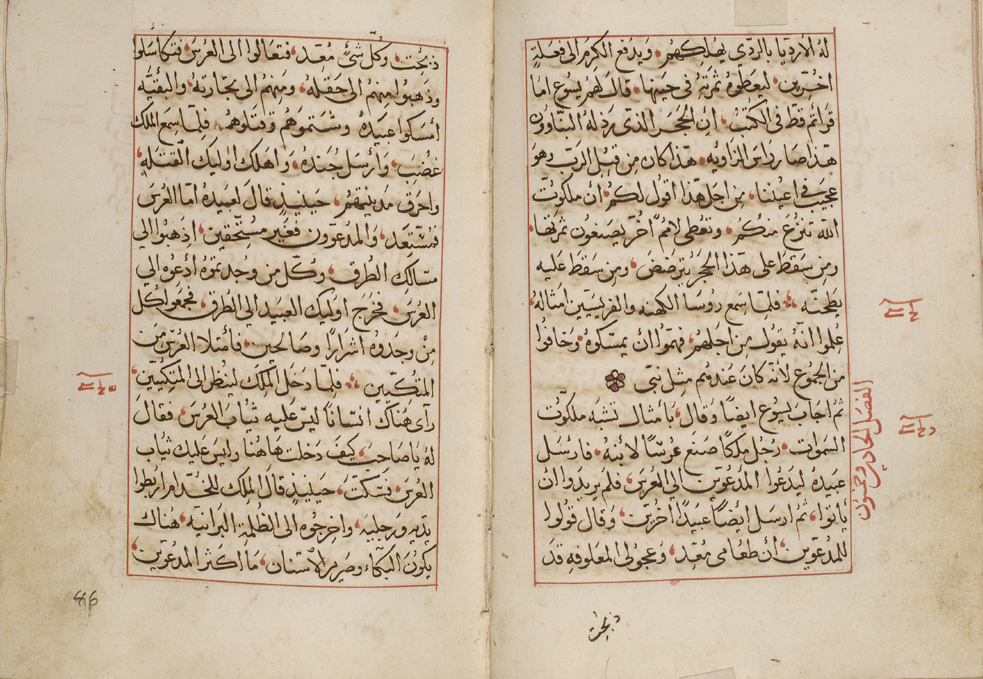 له الارديا بالردى يهلكهم، ويدفع الكرم الى فعلة
اخرين، ليعطوه ثمرته في حينها، قال لهم يسوع اما
قراتم قط في الكتب، ان الحجر الذي رذله البناوون
هذا صار راس الزاويه، هذا كان من قبل الرب وهو
عجيب في اعيننا، من اجل هذا اقول لكم، ان ملكوت
الله تنزع منكم، وتعطى لامم اخر يصنعون ثمرتها،
ومن سقط على هذا الحجر يترضض، ومن سقط عليه
يطحنه، فلما سمع روسا الكهنه والفريسيين امثاله،
علموا انه يقول من اجلهم، فهموا ان يمسكوه، وخافوا
من الجموع لانه كان عندهم مثل نبي
ثم اجاب يسوع ايضا وقال، بامثال تشبه ملكوت
السموات، رجل ملكا صنع عرسا لابنه، فارسل
عبيده ليدعوا المدعوين الى العرس، فلم يريدوا ان
ياتوا، ثم ارسل ايضا عبيدا اخرين، وقال قولوا
للمدعوين، ان طعامي معد، وعجولي المعلوفه قد
ذبحت
الفصل الحادي وخمسون
ذبحت، وكل شي معد، فتعالوا الى العرس، فتكاسلوا
وذهبوا منهم الى حقله، ومنهم الى تجارته، والبقيه
امسكوا عبيده وشتموهم وقتلوهم، فلما سمع الملك
غضب، وارسل جنده، واهلك اوليك القتله،
واحرق مدينتهم، حينيذ قال لعبيده اما العرس
فمستعد، والمدعوون فغير مستحقين، اذهبوا الى
مسالك الطرق، وكل من وجدتموه ادعوه الى
العرس، فخرج اوليك العبيد الى الطرق، فجمعوا كل
من وجدوه اشرارا وصالحين، فامتلا العرس من
المتكيين، فلما دخل الملك لينظر الى المتكيين،
راى هناك انسانا ليس عليه ثياب العرس، فقال
له ياصاحب، كيف دخلت هاهنا وليس عليك ثياب
العرس، فسكت، حينيذ قال الملك للخدام اربطوا
يديه ورجليه، واخرجوه الى الظلمة البرانيه، هناك
يكون البكاء وصرير الاسنان، ما اكثر المدعوين
46